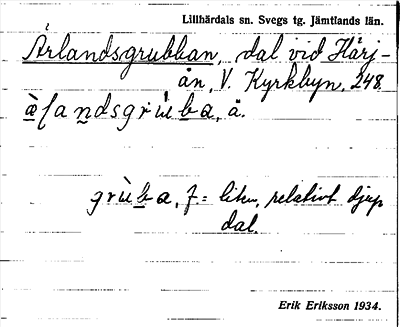 Lillhärdals sn. Svegs tg. Jämtlands län.
Årlandsgrubban, dal vid Härj-
ån, V. Kyrkbyn, 248.
å.
f. = liten, relativt djup
dal.
Erik Eriksson 1934.